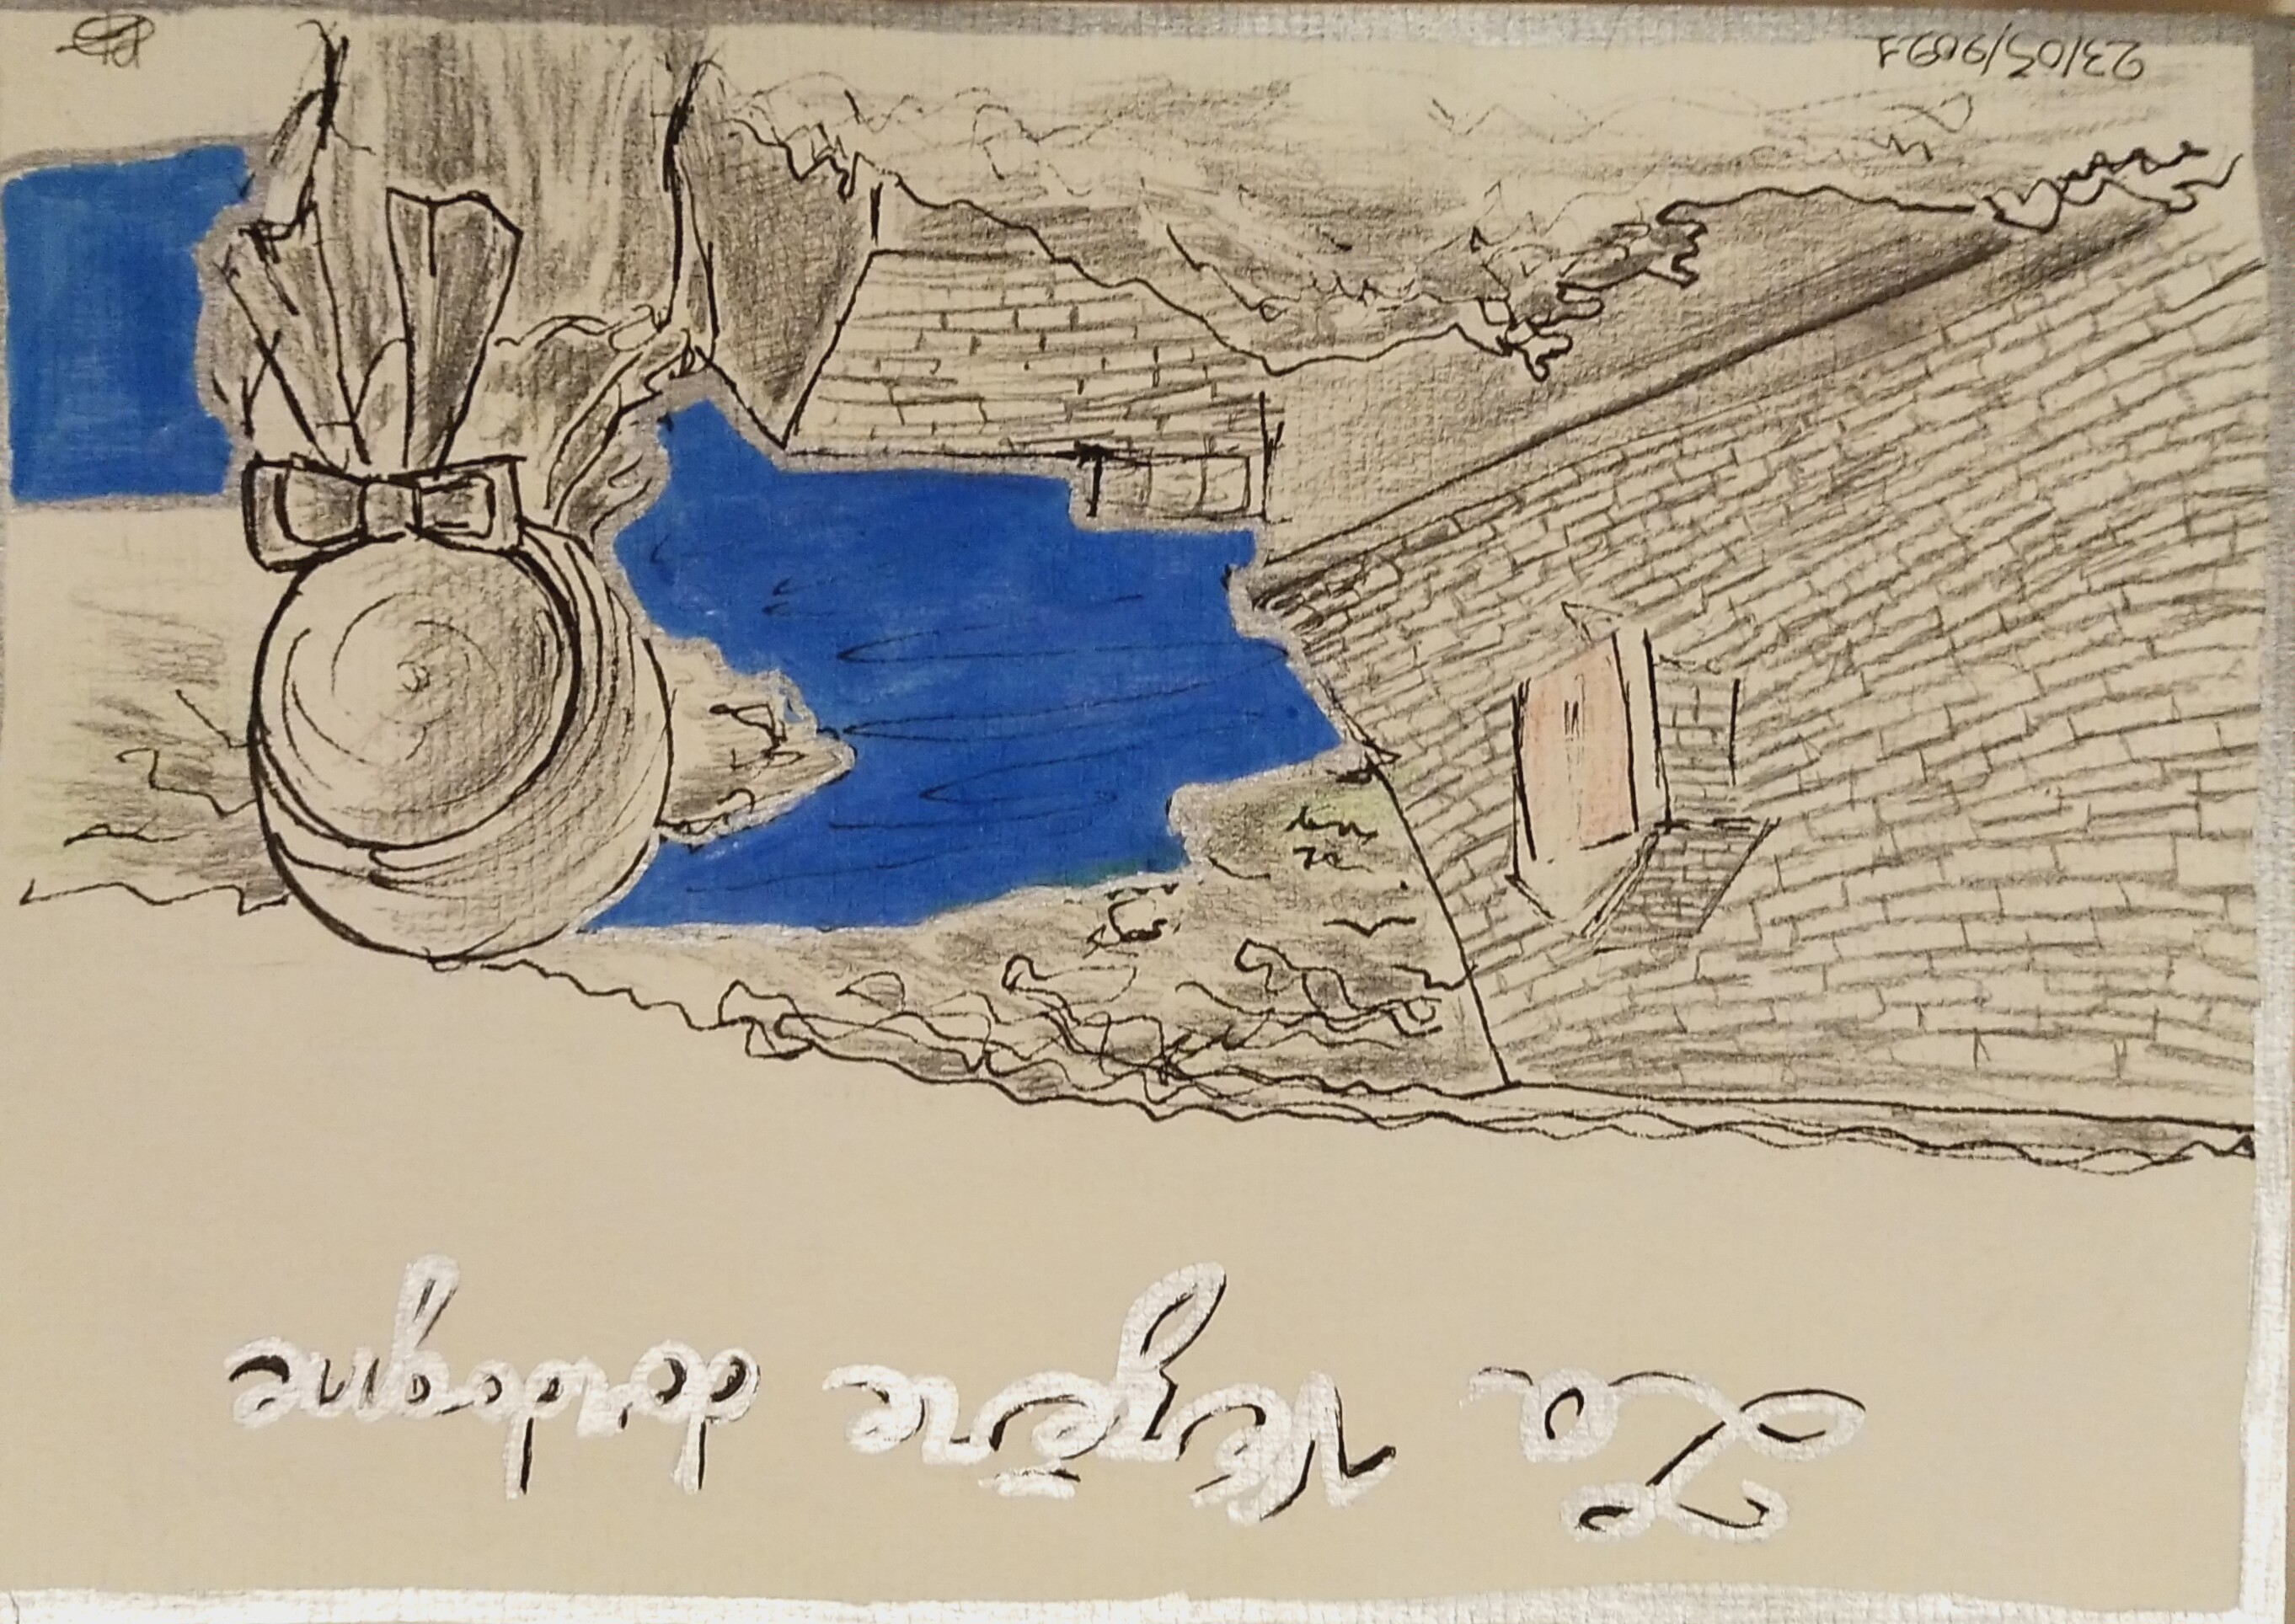 La Vézère dordogne
23/05/2021